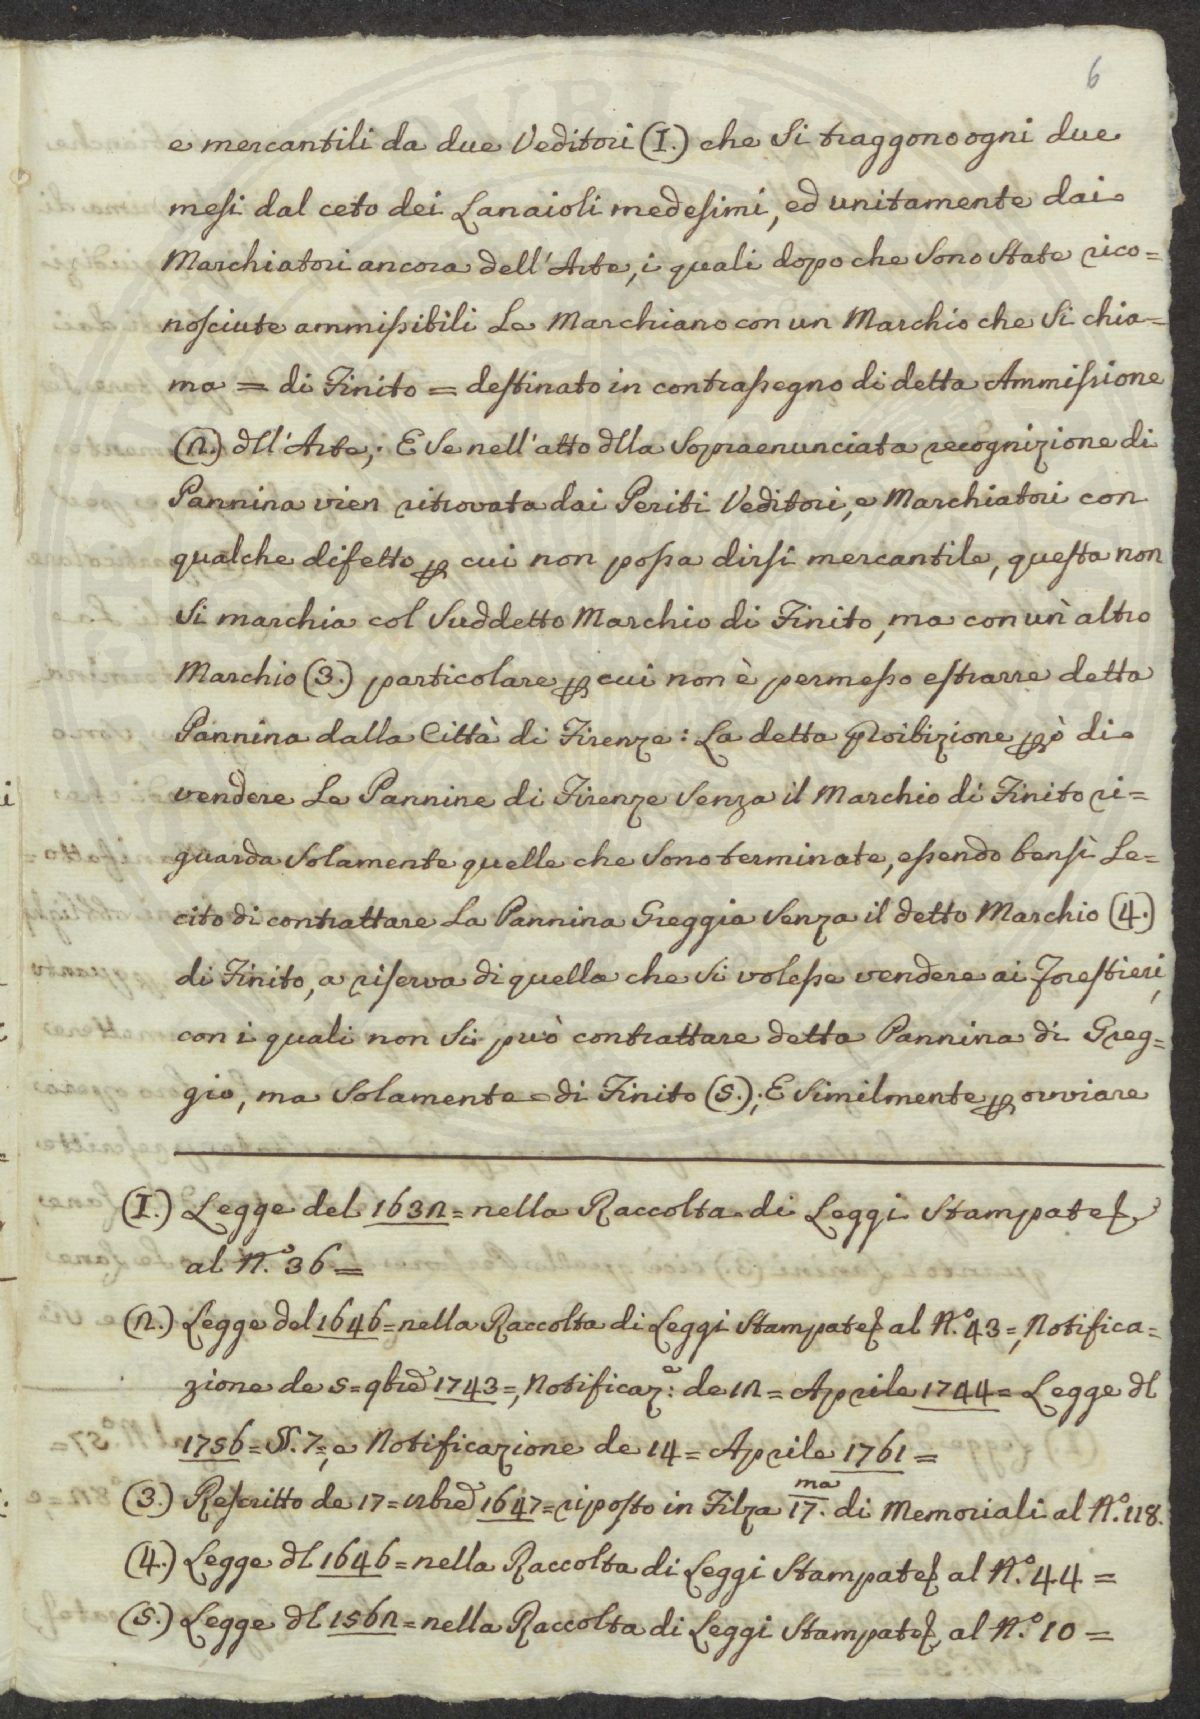 6
e mercantili da due Veditori (I.) che Si traggono ogni due
mesi dal ceto dei Lanaioli medesimi, ed unitamente dai
Marchiatori ancora dell'Arte, i quali dopo che Sono State rico=
nosciute ammissibili Le Marchiano con un Marchio che Si chia=
ma = di Finito = destinato in contrassegno di detta Ammissione
(2.) dll'Arte; E Se nell'atto dlla Sopraenunciata recognizione di
Pannina vien ritrovata dai Periti Veditori, e Marchiatori con
qualche difetto p cui non possa dirsi mercantile, questa non
Si marchia col Suddetto Marchio di Finito, ma con un'altro
Marchio (3.) particolare p cui non è permesso estrarre detta
Pannina dalla Città di Firenze: La detta Proibizione pò di
vendere Le Pannine di Firenze Senza il Marchio di Finito ri=
guarda Solamente quelle che Sono terminate, essendo bensì Le=
cito di contrattare La Pannina Greggia Senza il detto Marchio (4.)
di Finito, a riserva di quella che Si volesse vendere ai Forestieri,
con i quali non Si può contrattare detta Pannina di Greg=
gio, ma Solamente = di Finito (5.); E Similmente p ovviare
(I.) Legge del 1632 = nella Raccolta di Leggi Stampate
al N.º 36 =
(2.) Legge del 1646 = nella Raccolta di Leggi Stampate al N.º 43 =, Notifica=
zione de 5 = 9bre 1743 =, Notificaz.e de 12 = Aprile 1744 = Legge dl
1756 = §. 7 =, e Notificazione de 14 = Aprile 1761 =
(3.) Rescritto de 17 = 9bre 1647 = riposto in Filza 17.ma di Memoriali al N.º 118.
(4.) Legge dl 1646 = nella Raccolta di Leggi Stampate al N.º 44 =
(5.) Legge dl 1562 = nella Raccolta di Leggi Stampate al N.º 10 =